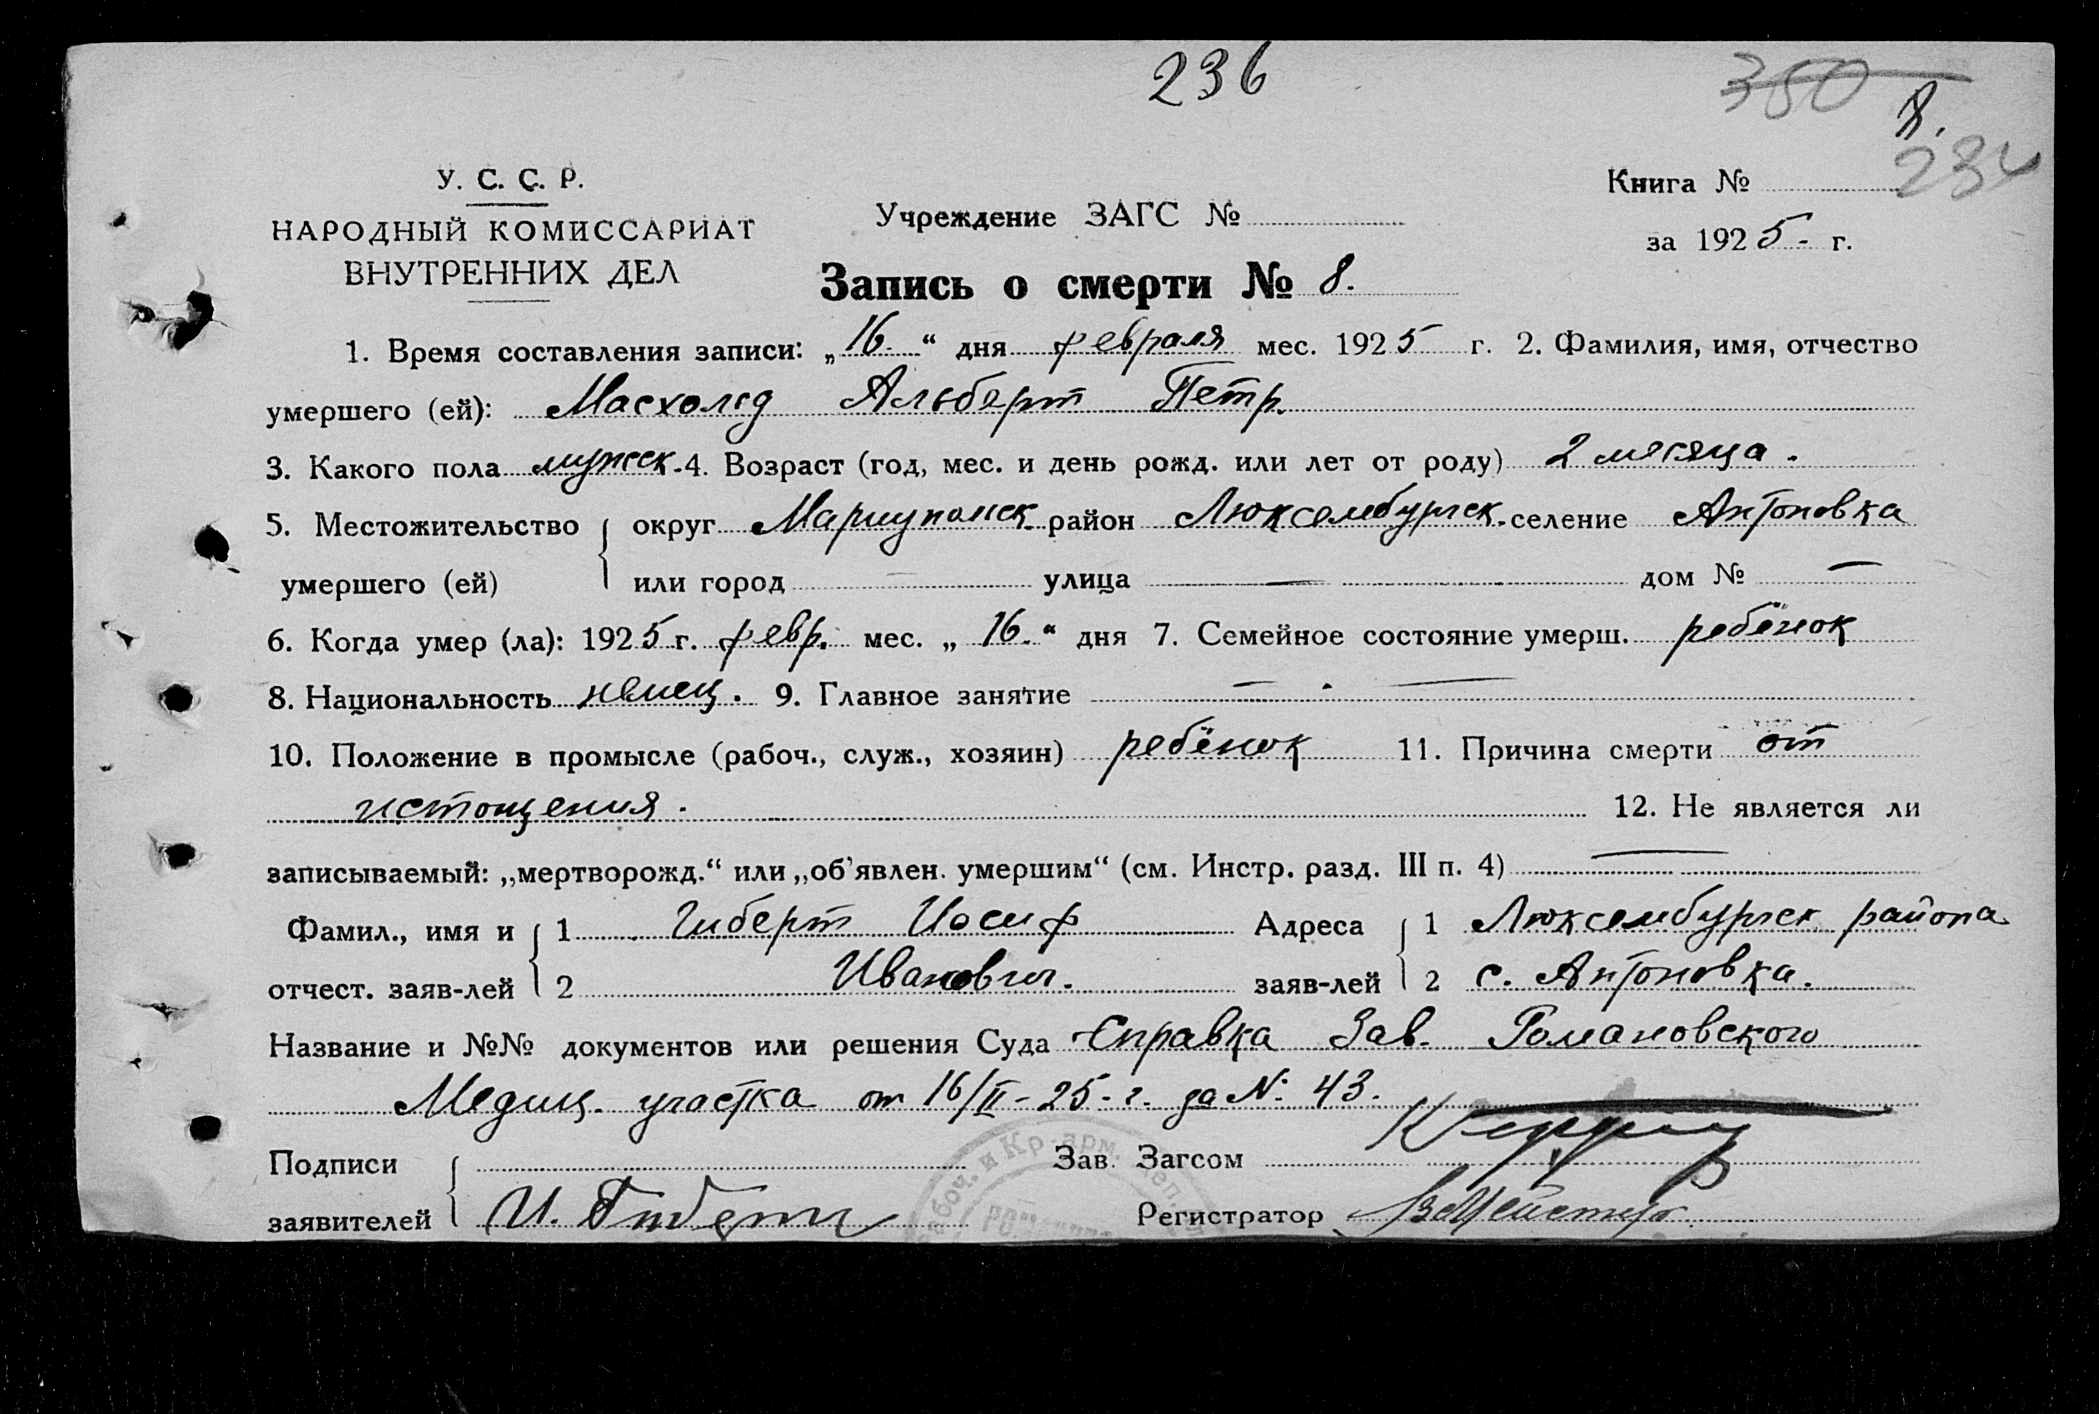 236
350
8.
234
У. С. С. Р.
НАРОДНЫЙ КОМИССАРИАТ
ВНУТРЕННИХ ДЕЛ
Учреждение ЗАГС №
Книга №
за 1925 г.
Запись о смерти № 8.
1. Время составления записи: „16.“ дня февраля мес. 1925 г. 2. Фамилия, имя, отчество
умершего (ей): Масхольд Альберт Петр.
3. Какого пола мужск. 4. Возраст (год, мес. и день рожд. или лет от роду) 2 месяца.
5. Местожительство округ Мариупольск. район Люксембургск. селение Антоновка
умершего (ей) или город — улица — дом № —
6. Когда умер (ла): 1925 г. февр. мес. „16.“ дня 7. Семейное состояние умерш. ребёнок
8. Национальность немец. 9. Главное занятие —
10. Положение в промысле (рабоч., служ., хозяин) ребёнок 11. Причина смерти от
истощения. 12. Не является ли
записываемый: „мертворожд.“ или „об'явлен. умершим“ (см. Инстр. разд. III п. 4) —
Фамил., имя и 1 Гиберт Иосиф Адреса 1 Люксембургск. района
отчест. заяв-лей 2 Иванович. заяв-лей 2 с. Антоновка.
Название и №№ документов или решения Суда Справка Зав. Романовского
Медиц. участка от 16/II-25-г. за №: 43.
Подписи Зав. Загсом
заявителей И. Гиберт Регистратор